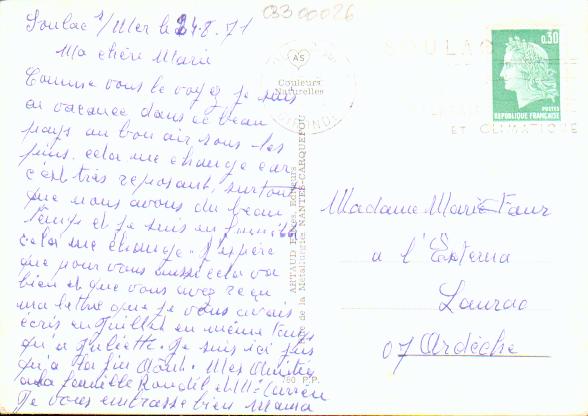 Soulac s/Mer le 24.8.71
03300026
Ma chère Marie
Comme vous le voyez je suis
en vacance dans ce beau
pays au bon air sous les
pins. cela me change car
c'est très reposant, surtout
que nous avons du beau
temps et je suis en famille
cela me change. J'espère
que pour vous aussi cela va
bien et que vous avez reçu
ma lettre que je vous avais
écris en Juillet en même temps
qu'à Juliette. Je suis ici jus
qu'à la fin Août. Mes Amitiés
à la famille et Mme
Je vous embrasse bien
AS
Couleurs
Naturelles
ARTAUD Editeurs
de la Métallurgie NANTES-CARQUEFOU
760 P.P.
SOULAC
ET CLIMATIQUE
0,30
POSTES
REPUBLIQUE FRANÇAISE
Madame Marie Faur
à l'Esterna
Laurac
07 Ardèche